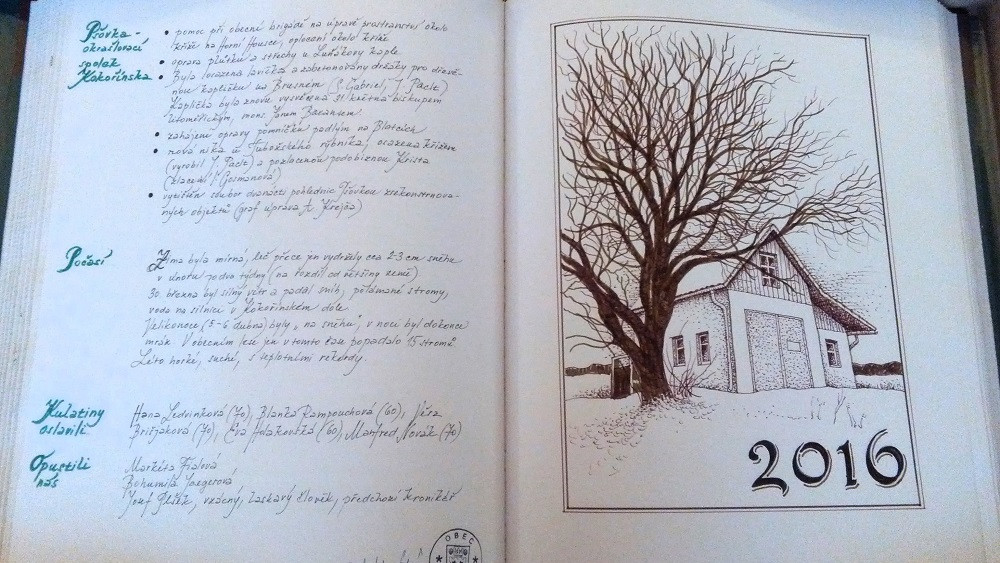 Pšovka -
okrašlovací
spolek
Kokořínska
• pomoc při obecní brigádě na úpravě prostranství okolo
kříže na Horní Housce, oplocení okolo kříže
• oprava plůtku a střechy u kaple
• Byla osazena lavička a zabetonovány držáky pro dřevě-
nou kapličku na Brusném (Gabriel, J. Paclt)
Kaplička byla znovu vysvěcena května biskupem
litoměřickým, mons. Janem Baxantem
• zahájení opravy pomníčku padlým na Blatcích
• nová nika u Tubožského rybníka, osazena křížem
(vyrobil J. Paclt) a pozlacenou podobiznou Krista
(zlacení
• vytištěn soubor dvanácti pohlednic Pšovkou zrekonstruova-
ných objektů (graf. úprava A. Krejča)
Počasí
Zima byla mírná, leč přece jen vydržely cca 2-3 cm sněhu
v únoru dva týdny (na rozdíl od většiny země)
30. března byl silný vítr a padal sníh, polámané stromy,
voda na silnici v Kokořínském dole.
Velikonoce (5-6 dubna) byly „na sněhu", v noci byl dokonce
mráz. V obecním lese jen v tomto čase popadalo 15 stromů
Léto horké, suché, s teplotními rekordy.
Kulatiny
oslavili
Hana Ledvinková (70), Blanka Rampouchová (60), Věra
(70), Eva (60), Manfred Novák (70)
Opustili
nás
Markéta Fialová
Bohumila Jaegerová
Josef Plšek, vzácný, laskavý člověk, předchozí kronikář
OBEC
2016